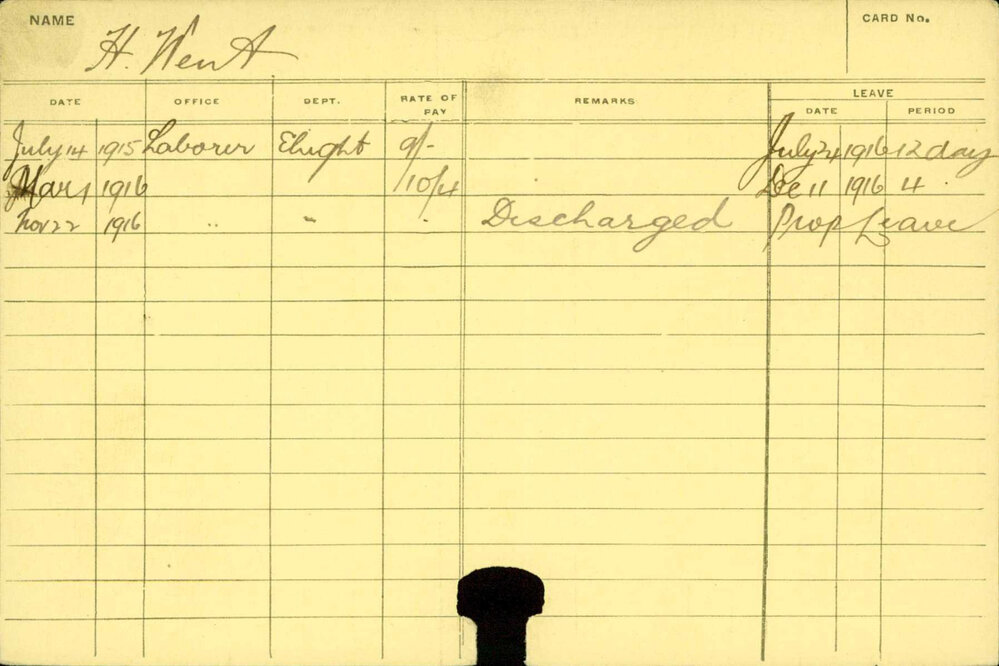 NAME H. Went CARD No.
LEAVE
DATE OFFICE DEPT. RATE OF PAY REMARKS DATE PERIOD
July 14 1915 Laborer Elight 9/- July 24 1916 12 day
Mar 1 1916 10/4 De 11 1916 4
Nov 22 1916 " " " Discharged Prop Leave